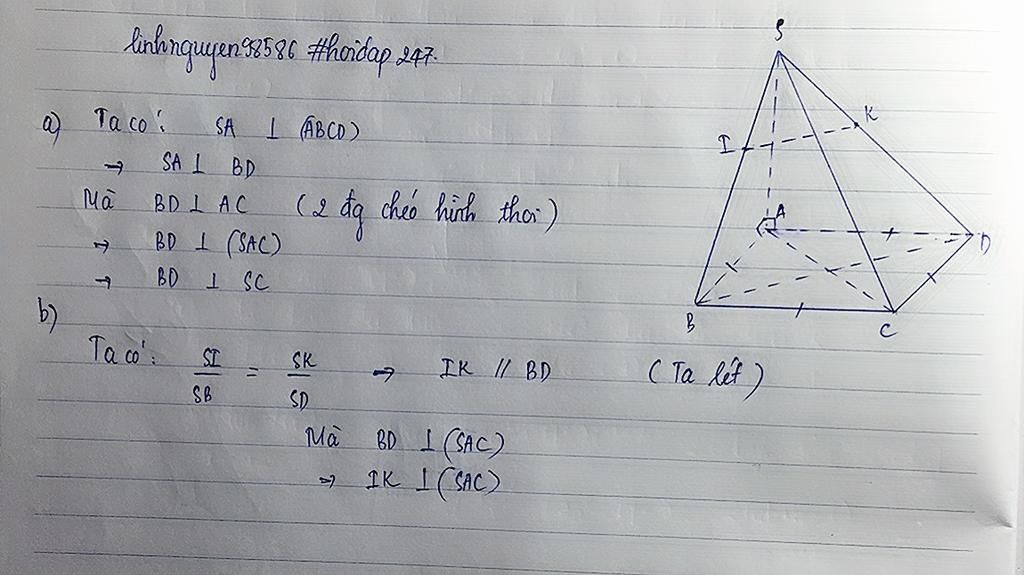 linhnguyen98586 #hoidap247.
a) Ta có: SA ⊥ (ABCD)
→ SA ⊥ BD
Mà BD ⊥ AC (2 đg chéo hình thoi)
→ BD ⊥ (SAC)
→ BD ⊥ SC
b)
Ta có: SI/SB = SK/SD → IK // BD (Ta lét)
Mà BD ⊥ (SAC)
→ IK ⊥ (SAC)
S
K
I
A
D
B
C